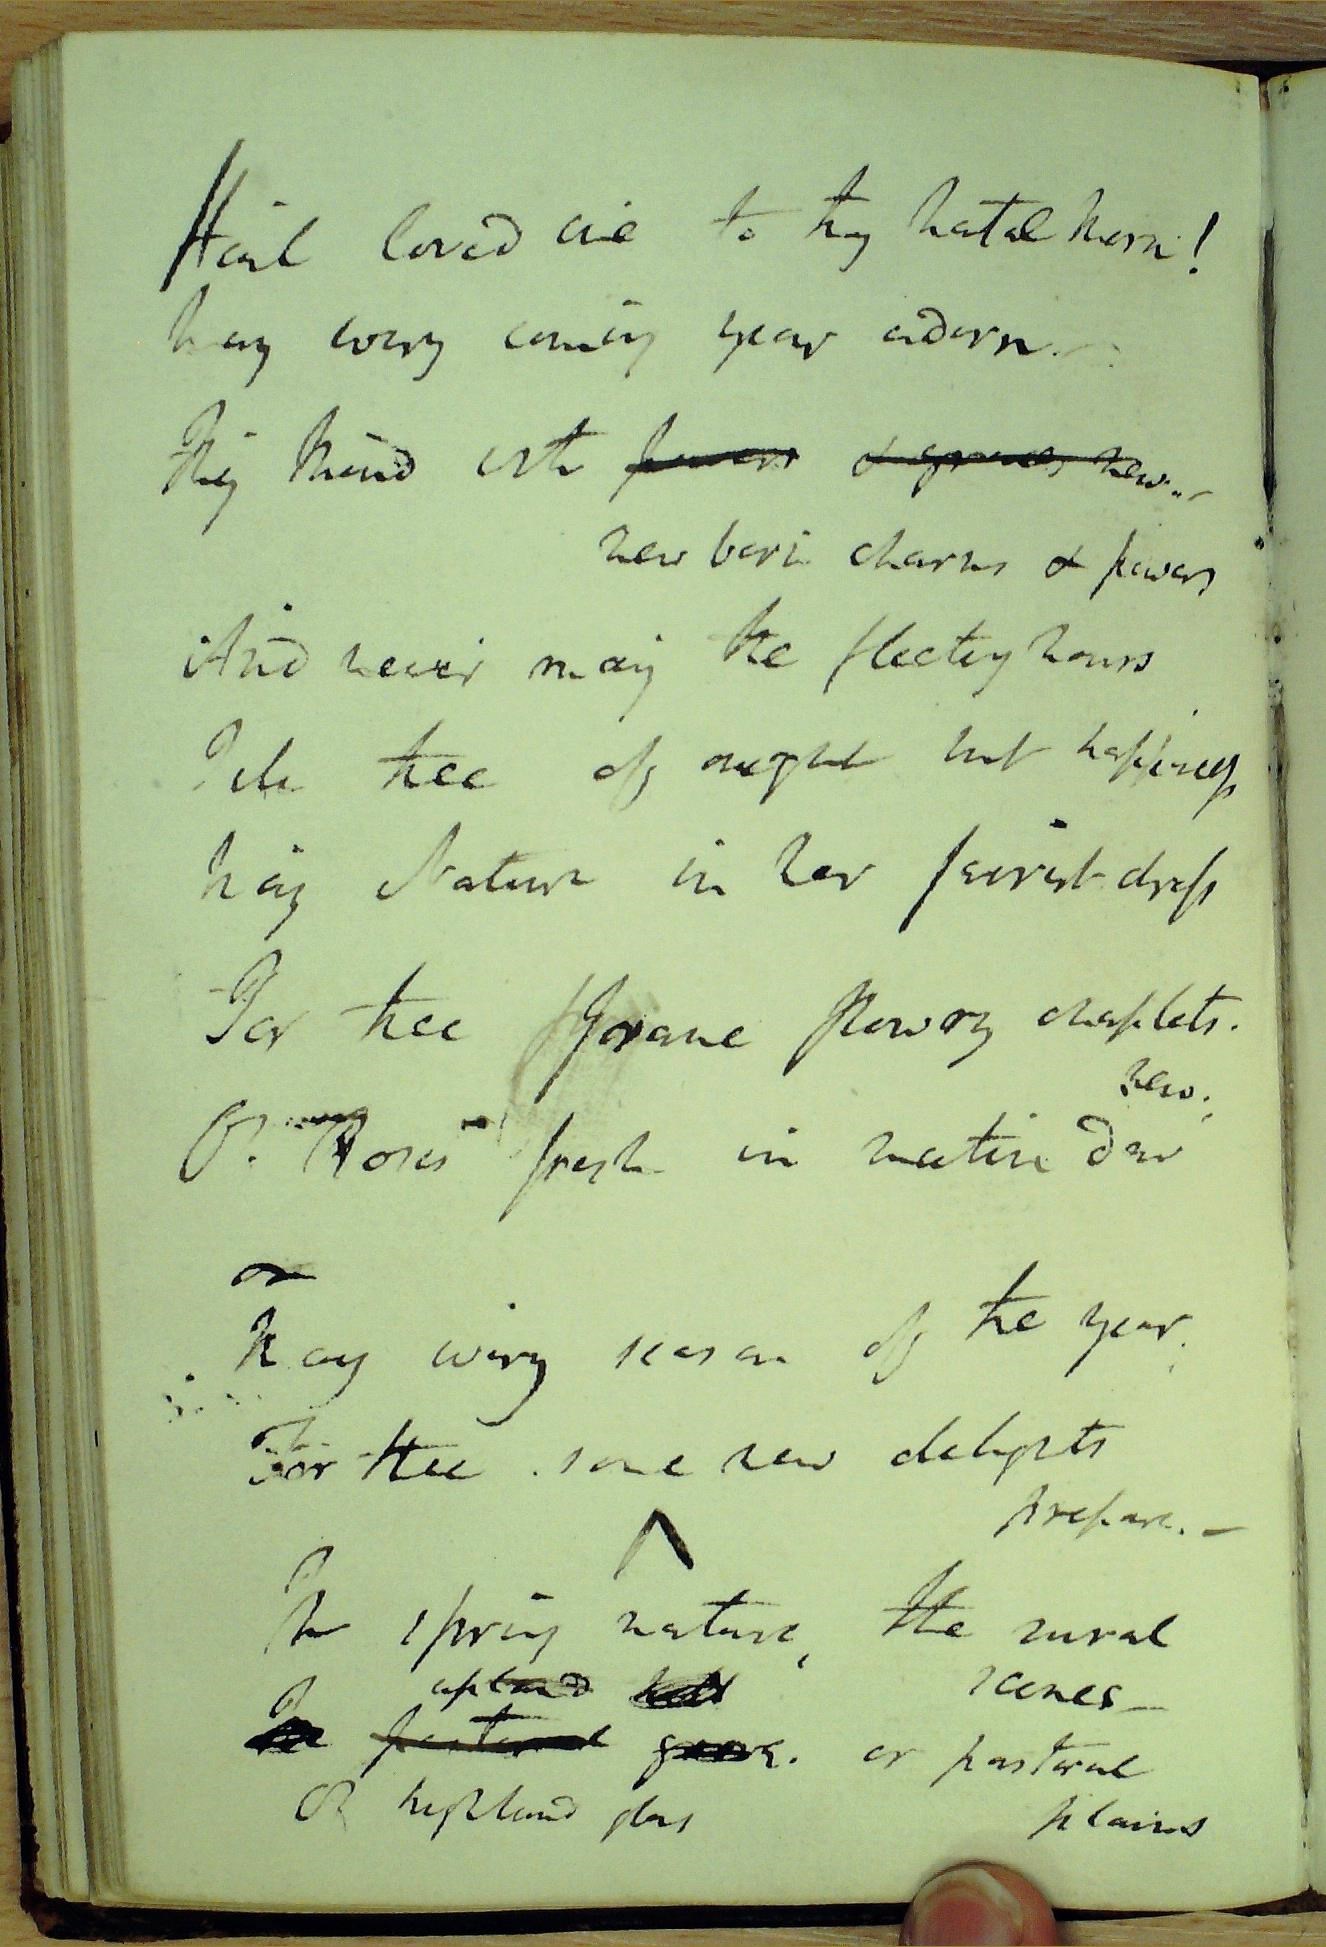 Hail loved one to thy natal Morn!
May every coming year adorn.
Thy Mind with powers & graces new.
new born charms & powers
And never may the fleeting hours
thee of ought but happiness
May Nature in her fairest dress
For thee flowery chaplets
new.
Of Roses fresh in native Dew
or
May every season of the year
For thee some new delights
prepare. —
In spring nature, the rural
upland scenes —
pastoral grove. or pastoral
Or highland glens plains